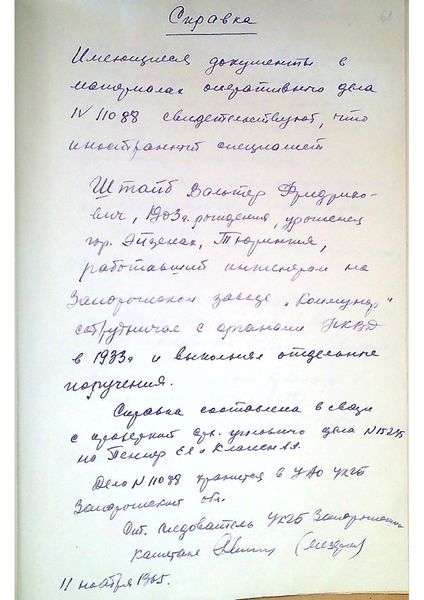 61
Справка
Имеющиеся документы в
материалах оперативного дела
№ 11088 свидетельствуют, что
иностранный специалист
Штайб Вальтер Фридрихо-
вич, 1903 г. рождения, уроженец
гор. Эйзенах, Тюрингия,
работавший инженером на
Запорожском заводе „Коммунар"
сотрудничал с органами НКВД
в 1933 г и выполнял отдельные
поручения.
Справка составлена в связи
с проверкой арх. уголовного дела
на Пеннер и Классен
Дело № 11088 хранится в УАО УКГБ
Запорожской обл.
Ст. следователь УКГБ Запорожской
капитан
11 ноября 1965.